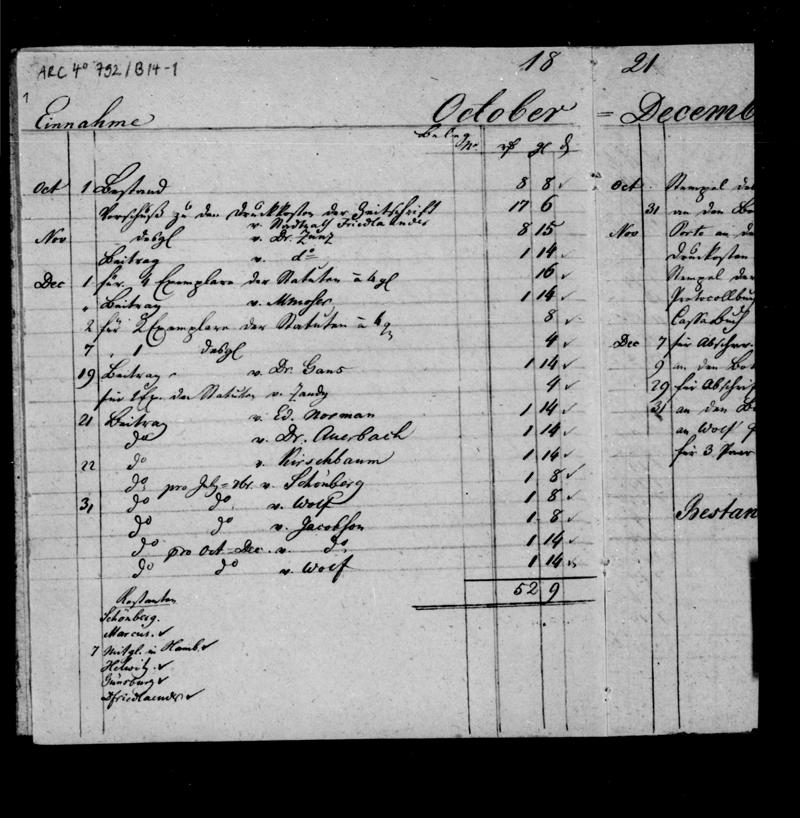 ARC 4° 792/B14-1
18 21
1
Einnahme October = Decemb
Beleg No. rℓ gl d
Oct 1 Bestand 8 8 ✓
Vorschuß zu den Druckkosten der Zeitschrift
v. Stadtrath Friedlander 17 6
Nov desgl v. Dr. Zunz 8 15
Beitrag v. do 1 14 ✓
Dec 1 für 4 Exemplare der Statuten à 4 gl 16 ✓
" Beitrag v. M. Moser 1 14 ✓
2 für 2 Exemplare der Statuten à 4 gr 8 ✓
7 " 1 desgl 4 ✓
19 Beitrag v. Dr. Gans 1 14 ✓
für 1 Ex. der Statuten v. 4 ✓
21 Beitrag v. Ed. Norman 1 14 ✓
do v. Dr. Auerbach 1 14 ✓
22 do v. Kirschbaum 1 14 ✓
do pro July = 7br. v. Schönberg 1 8 ✓
31 do do v. Wolf 1 8 ✓
do do v. Jacobson 1 8 ✓
do pro Oct-Dec. v. do 1 14 ✓
do do v. Wolf 1 14
52 9
Restanten
Schönberg.
Marcus. ✓
7 Mitgl. in Hamb. ✓
✓
Günsburg ✓
Dfriedlaender ✓
Oct Stempel de
31 an den Bo
Nov Porto an d
Druckkosten
Stempel der
Protocollbu
Cassabuch
Dec 7 für Abschr
9 an den Bot
29 für Abschrif
31 an den B
an Wolf
für 3
Bestan